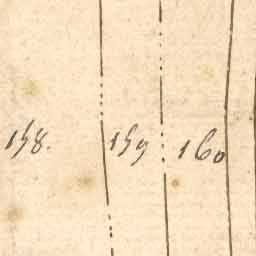 158. 159 160